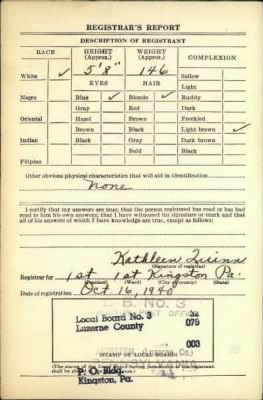 REGISTRAR'S REPORT
DESCRIPTION OF REGISTRANT
RACE HEIGHT (Approx.) WEIGHT (Approx.) COMPLEXION
White ✓ 5'8" ✓ 146 Sallow
EYES HAIR Light
Negro Blue ✓ Blonde ✓ Ruddy
Gray Red Dark
Oriental Hazel Brown Freckled
Brown Black Light brown ✓
Indian Black Gray Dark brown
Bald Black
Filipino
Other obvious physical characteristics that will aid in identification
None
I certify that my answers are true; that the person registered has read or has had
read to him his own answers; that I have witnessed his signature or mark and that
all of his answers of which I have knowledge are true, except as follows:
Kathleen Quinn
(Signature of registrar)
Registrar for 1st 1st Kingston Pa.
(Precinct) (Ward) (City or County) (State)
Date of registration Oct 16, 1940
L. B. NO. 3
Local Board No. 3 32
Luzerne County 079
003
(STAMP OF LOCAL BOARD)
P. O. Bldg.
Kingston, Pa.